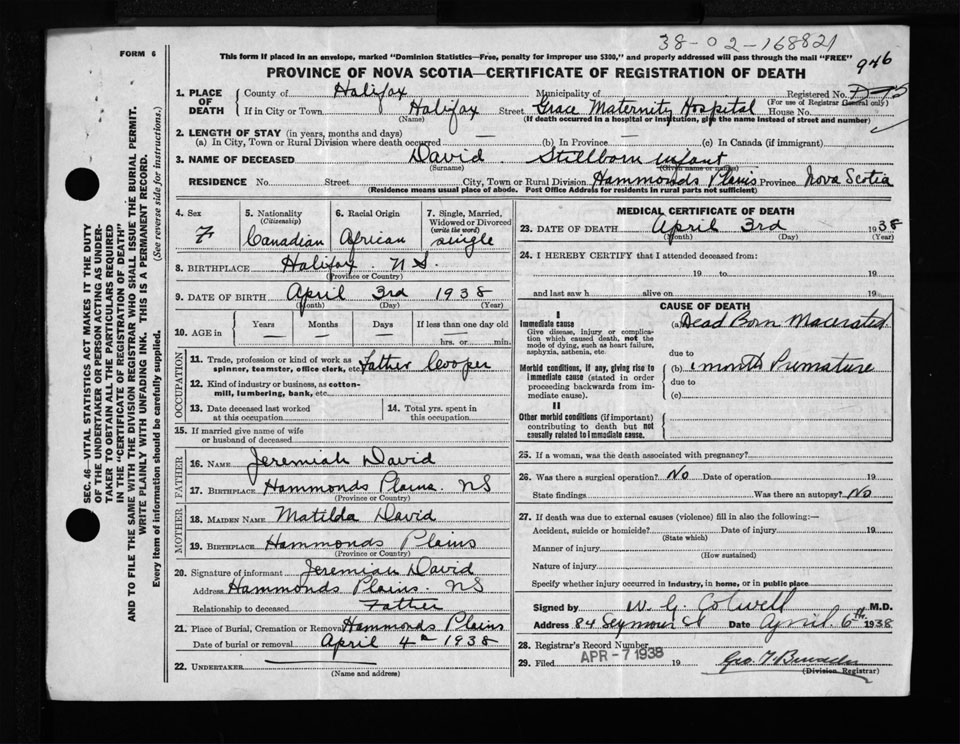 38-02-168821
946
FORM 6
This form if placed in an envelope, marked "Dominion Statistics—Free, penalty for improper use $300," and properly addressed will pass through the mail "FREE"
PROVINCE OF NOVA SCOTIA—CERTIFICATE OF REGISTRATION OF DEATH
1. PLACE OF DEATH
County of Halifax Municipality of Registered No.
(For use of Registrar General only)
If in City or Town Halifax Street Grace Maternity Hospital House No.
(Name) (If death occurred in a hospital or institution, give the name instead of street and number)
2. LENGTH OF STAY (in years, months and days)
(a) In City, Town or Rural Division where death occurred — (b) In Province (c) In Canada (if immigrant)
3. NAME OF DECEASED David. Stillborn infant
(Surname) (Given name or names)
RESIDENCE No. Street City, Town or Rural Division Hammonds Plains Province Nova Scotia
(Residence means usual place of abode. Post Office Address for residents in rural parts not sufficient)
4. Sex
F
5. Nationality
(Citizenship)
Canadian
6. Racial Origin
African
7. Single, Married, Widowed or Divorced
(write the word)
single
8. BIRTHPLACE Halifax N.S.
(Province or Country)
9. DATE OF BIRTH April 3rd 1938
(Month) (Day) (Year)
10. AGE in
Years Months Days If less than one day old
— — — hrs. or min.
OCCUPATION
11. Trade, profession or kind of work as spinner, teamster, office clerk, etc. Father Cooper
12. Kind of industry or business, as cotton-mill, lumbering, bank, etc.
13. Date deceased last worked at this occupation
14. Total yrs. spent in this occupation.
15. If married give name of wife or husband of deceased
FATHER
16. NAME Jeremiah David
17. BIRTHPLACE Hammonds Plains. NS
(Province or Country)
MOTHER
18. MAIDEN NAME Matilda David
19. BIRTHPLACE Hammonds Plains
(Province or Country)
20. Signature of informant Jeremiah David
Address Hammonds Plains. NS
Relationship to deceased Father
21. Place of Burial, Cremation or Removal Hammonds Plains
Date of burial or removal April 4 1938
22. UNDERTAKER
(Name and address)
MEDICAL CERTIFICATE OF DEATH
23. DATE OF DEATH April 3rd 1938
(Month) (Day) (Year)
24. I HEREBY CERTIFY that I attended deceased from:
19 to 19
and last saw h alive on 19
CAUSE OF DEATH
I
Immediate cause
Give disease, injury or complication which caused death, not the mode of dying, such as heart failure, asphyxia, asthenia, etc.
(a) Dead Born Macerated.
due to
Morbid conditions, if any, giving rise to immediate cause (stated in order proceeding backwards from immediate cause).
(b) month Premature
due to
(c)
II
Other morbid conditions (if important) contributing to death but not causally related to immediate cause.
25. If a woman, was the death associated with pregnancy?
26. Was there a surgical operation? No Date of operation 19
State findings Was there an autopsy? No
27. If death was due to external causes (violence) fill in also the following:—
Accident, suicide or homicide? Date of injury 19
(State which)
Manner of injury
(How sustained)
Nature of injury
Specify whether injury occurred in industry, in home, or in public place
Signed by W. G. Colwell M.D.
Address 84 Seymour St Date April. 6th 1938
28. Registrar's Record Number
29. Filed APR -7 1938 19
(Division Registrar)
SEC. 46—VITAL STATISTICS ACT MAKES IT THE DUTY
OF THE UNDERTAKER OR PERSON ACTING AS UNDER-
TAKER TO OBTAIN ALL THE PARTICULARS REQUIRED
IN THE "CERTIFICATE OF REGISTRATION OF DEATH"
AND TO FILE THE SAME WITH THE DIVISION REGISTRAR WHO SHALL ISSUE THE BURIAL PERMIT.
WRITE PLAINLY WITH UNFADING INK. THIS IS A PERMANENT RECORD.
Every item of information should be carefully supplied. (See reverse side for instructions.)